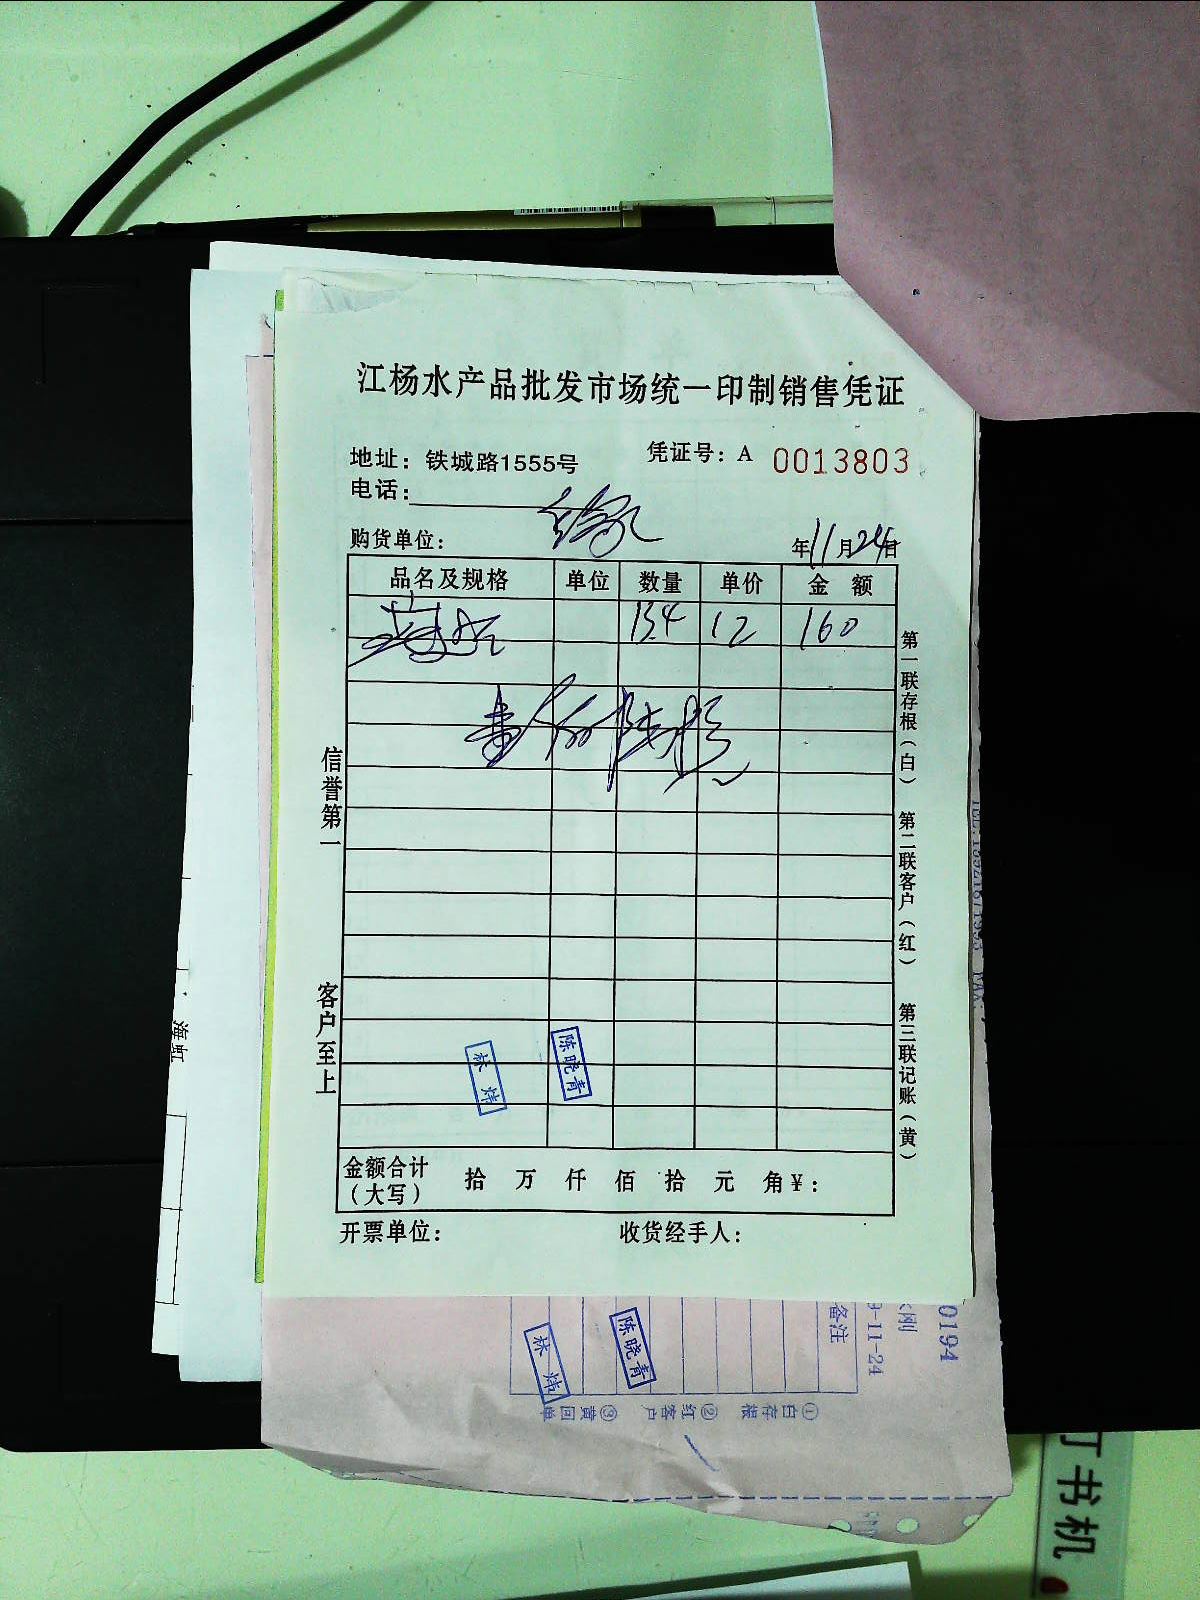 江杨水产品批发市场统一印制销售凭证
地址：铁城路1555号
凭证号：A 0013803
电话：
购货单位：
年11月24日
品名及规格 单位 数量 单价 金额
134 12 160
信誉第一
客户至上
第一联存根（白） 第二联客户（红） 第三联记账（黄）
林炜
陈晓青
金额合计（大写） 拾 万 仟 佰 拾 元 角￥：
开票单位： 收货经手人：
海虹
0194
刚
9-11-24
备注
陈晓青
林炜
①白存根 ②红客户 ③黄回单
订书机